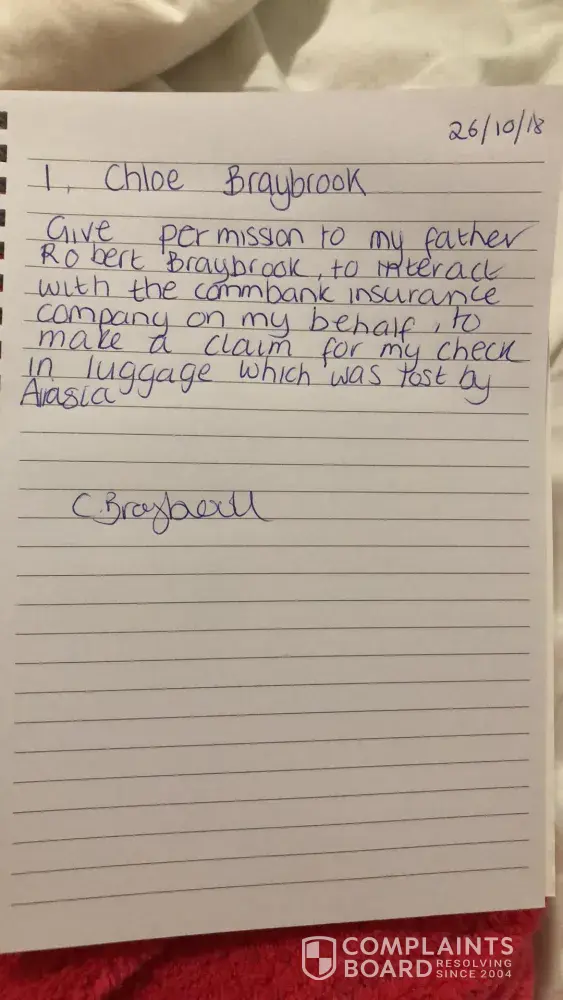 26/10/18
I, Chloe Braybrook
Give permission to my father
Robert Braybrook, to interact
with the commbank insurance
company on my behalf, to
make a claim for my check
in luggage which was lost by
Airasia
C.Braybrook
COMPLAINTS
BOARD RESOLVING
SINCE 2004